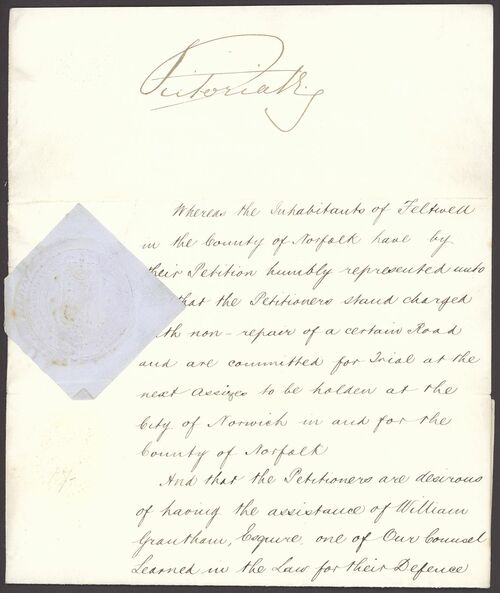 Victoria R.
Whereas the Inhabitants of Feltwell
in the County of Norfolk have by
their Petition humbly represented unto
that the Petitioners stand charged
with non-repair of a certain Road
and are committed for Trial at the
next Assizes to be holden at the
City of Norwich in and for the
County of Norfolk
And that the Petitioners are desirous
of having the assistance of William
Grantham, Esquire, one of Our Counsel
Learned in the Law for their Defence